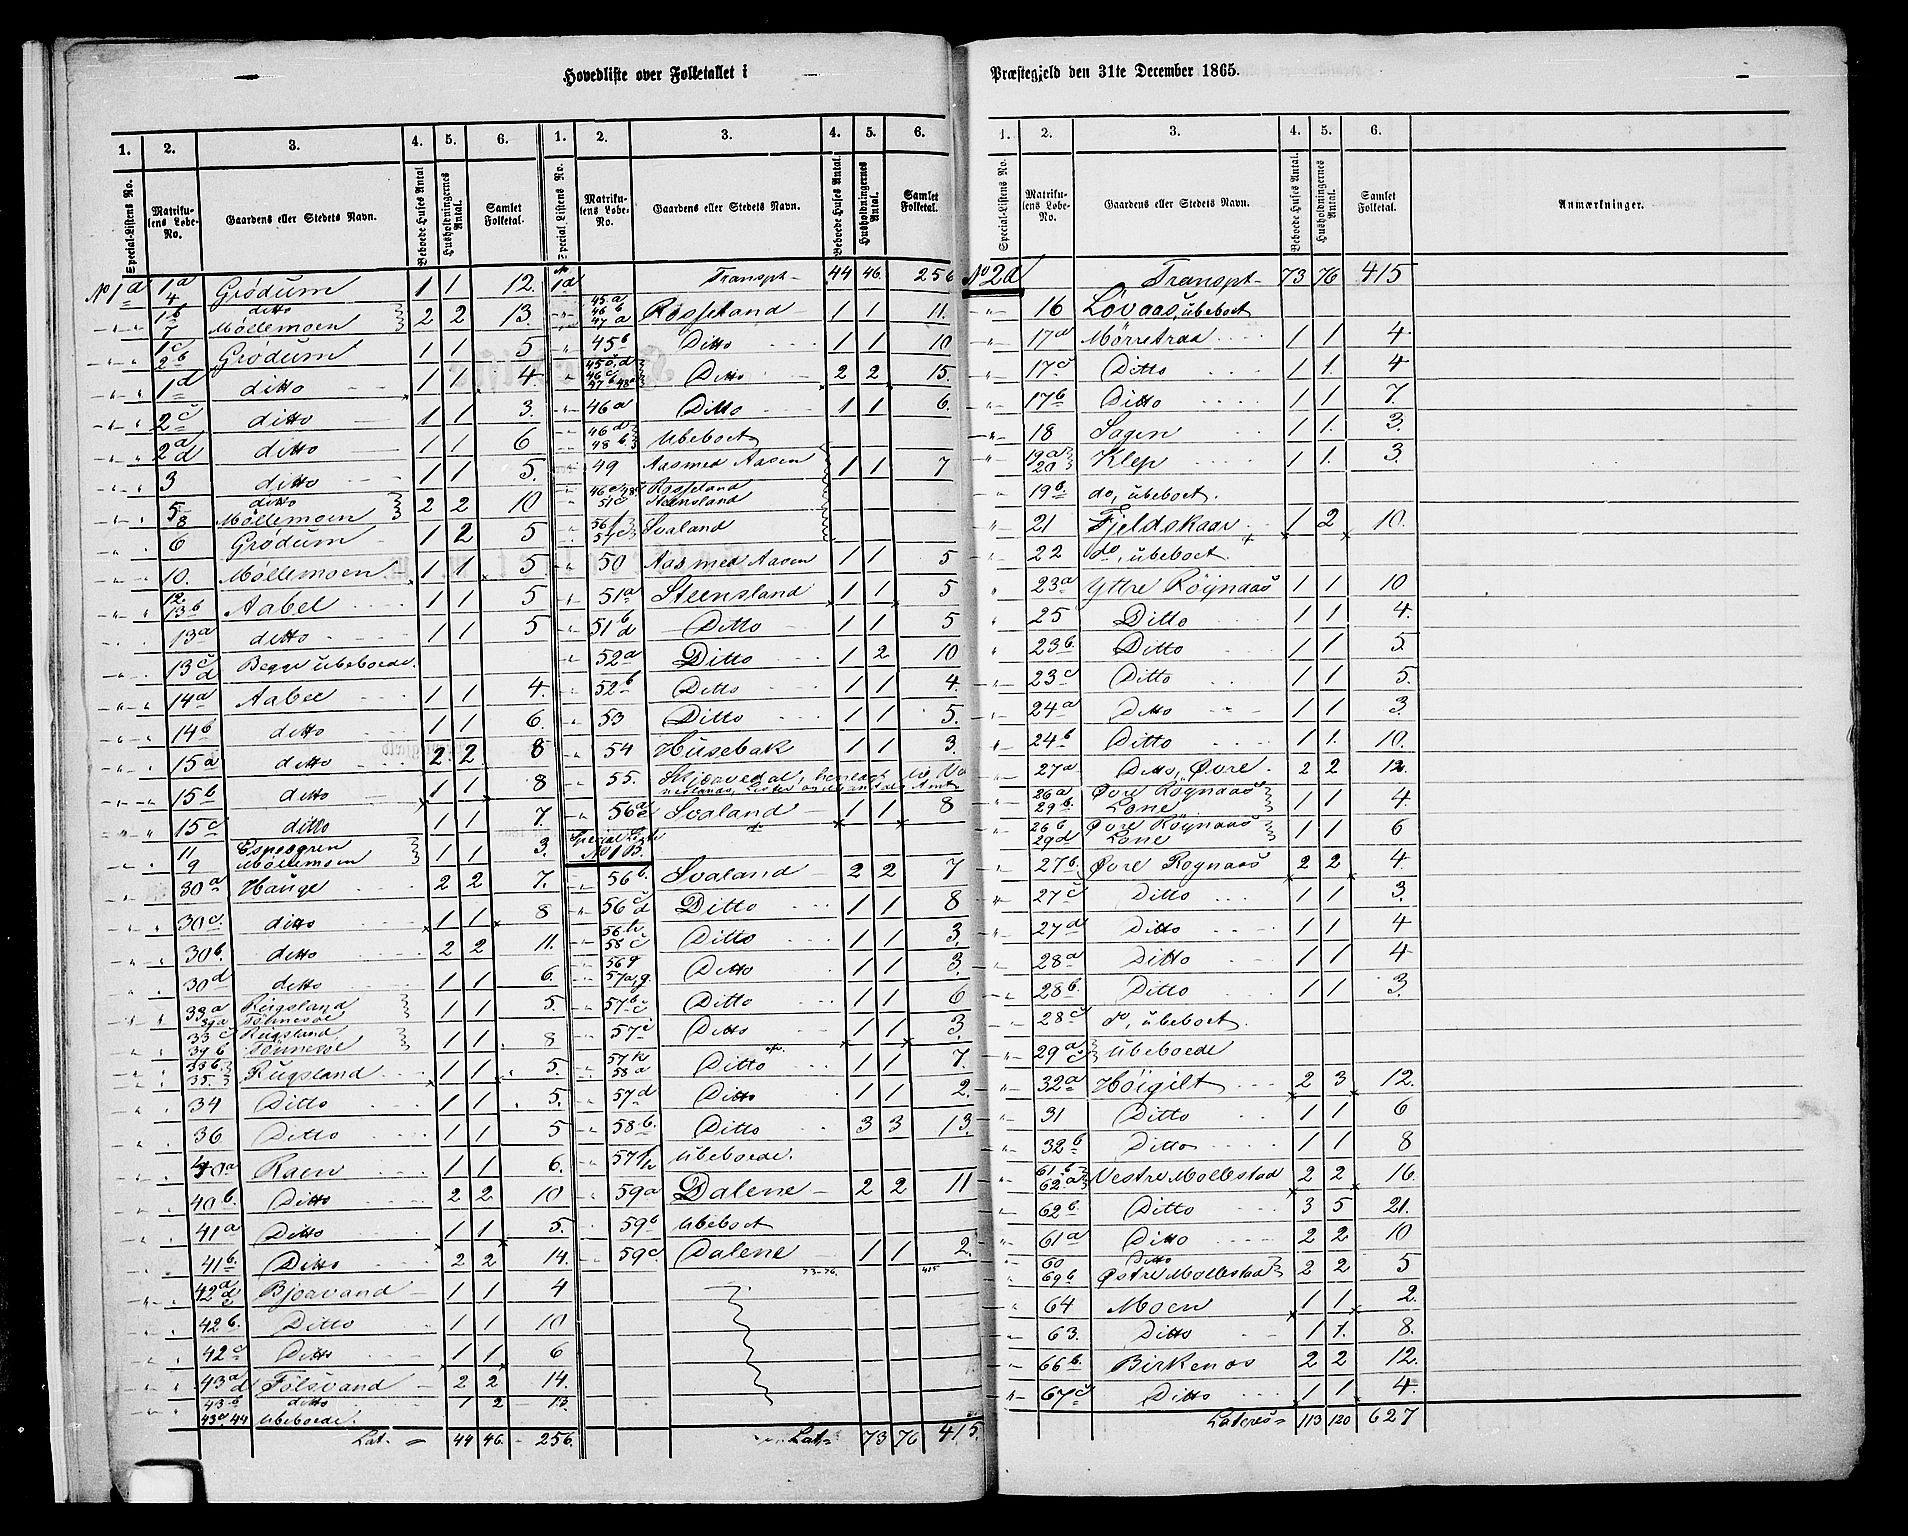 Hovedliste over Folketallet i
1. 2. 3. 4. 5. 6.
Special-Listens No. Matrikulens Løbe-No. Gaardens eller Stedets Navn. Beboede Huses Antal Husholdningernes Antal. Samlet Folketal.
No 1a 1a 4 Grødum 1 1 12.
1b 7 ditto Møllemoen 2 2 13.
1c 2b Grødum 1 1 5
1d ditto 1 1 4
2c ditto 1 1 3.
2a d ditto 1 1 6
3 ditto 1 1 5.
5 8 ditto Møllemoen 2 2 10
6 Grødum 1 2 5
10. Møllemoen 1 1 5
12. 13b Aabel 1 1 5
13a ditto 1 1 5
13c d Begge ubeboede.
14a Aabel 1 1 4.
14b ditto 1 1 6.
15a ditto 2 2 8
15b ditto 1 1 8
15c ditto 1 1 7.
11 9 Espesgren Møllemoen 1 1 3.
30a Hauge 2 2 7.
30c ditto 1 1 8
30b. ditto 2 2 11.
30d ditto 1 1 6.
33a 39a Rugsland Tønnesøl 1 1 5.
33c 39b Rugsland Tønnesøl 1 1 8
35b. 35. Rugsland 1 1 5.
34 Ditto 1 1 5.
36 Ditto 1 1 5
40a Raen 1 1 6.
40b. Ditto 2 2 10
41a Ditto 1 1 5.
41b Ditto 2 2 14.
42a d Bjorvand 1 1 4
42b. Ditto 1 1 10
42c Ditto 1 1 6
43a d Tolsvand 2 2 14.
43b ditto 1 2 13
43c 44 Ubeboede.
Lat. 44 46. 256.
1. 2. 3. 4. 5. 6.
Special Listens No. Matrikulens Løbe-No. Gaardens eller Stedets Navn. Beboede Huses Antal Husholdningernes Antal. Samlet Folketal.
No 1a Transpt 44 46. 256
45a 46b 47a Rosseland 1 1 11.
45b Ditto 1 1 10
45c,d 46c 47b 48a Ditto 2 2 15.
46a Ditto 1 1 6.
46d 48b Ubeboet
49 Aas med Aasen 1 1 7
51c Rosseland Steensland
56f 57c Svaland
50 Aas med Aasen 1 1 5
51a Steensland 1 1 5
51b d Ditto 1 1 5
52a Ditto 1 2 10
52b Ditto 1 1 4.
53 Ditto 1 1 5.
54 Husebak 1 1 3.
55. Skjeavedal, henlagt
56a e Svaland 1 1 8
Special Liste No 1 B.
56b. Svaland 2 2 7
56c d Ditto 1 1 8
56h 58c Ditto 1 1 3.
56g 57a,g. Ditto 1 1 3.
57b c Ditto 1 1 6
57i Ditto 1 1 3
57k 58a Ditto 1 1 7.
57d Ditto 1 1 2.
58b. Ditto 3 3 13.
57f h Ubeboede.
59a Dalene 2 2 11
59b Ubeboet
59c Dalene 1 1 2.
73-76. 415
Lat. 73 76 415.
Præstegjeld den 31te December 1865.
1. 2. 3. 4. 5. 6.
Special-Listens No. Matrikulens Løbe-No. Gaardens eller Stedets Navn. Beboede Huses Antal. Husholdningernes Antal. Samlet Folketal. Anmærkninger.
No 2a Transpt 73 76 415
16 Løvaas, ubeboet
17a Mørretraa 1 1 4
17c Ditto 1 1. 4
17b Ditto 1 1 7.
18 Sagen 1 1. 3.
19a 20 Klep 1 1. 3.
19b. do, ubeboet.
21 Fjeldskaar 1 2 10.
22 do, ubeboet.
23a Yttre Røynaas 1 1 10
25 Ditto 1 1 4.
23b. Ditto 1 1 5.
23c Ditto 1 1 5.
24a Ditto 1 1 3.
24b Ditto 1 1. 10.
27a Ditto, Øvre. 2 2 12.
26a 29b. Øvre Røgnaas Lone 1 1 4.
26b 29d Øvre Røynaas Lone 1 1 6
27b. Øvre Rognaas 2 2 4.
27c Ditto 1 1 3.
27d Ditto 1 1 4
28a Ditto 1 1 4
28b. Ditto 1 1 3.
28c do, ubeboet.
29a c Ubeboede
32a Høigilt 2 3 12.
31 Ditto 1 1 6
32b Ditto 1 1 8
61b 62a Vestre Mollestad 2 2 16.
62b. Ditto 3 5 21.
61a Ditto 2 2 10
60 69b Ditto Østre Mollestad 2 2 5
64 Moen 1 1 2.
63. Ditto 1 1. 8.
66b. Birkenes 2 2 12.
67c Ditto 1 1 4.
Lateres 113 120 627